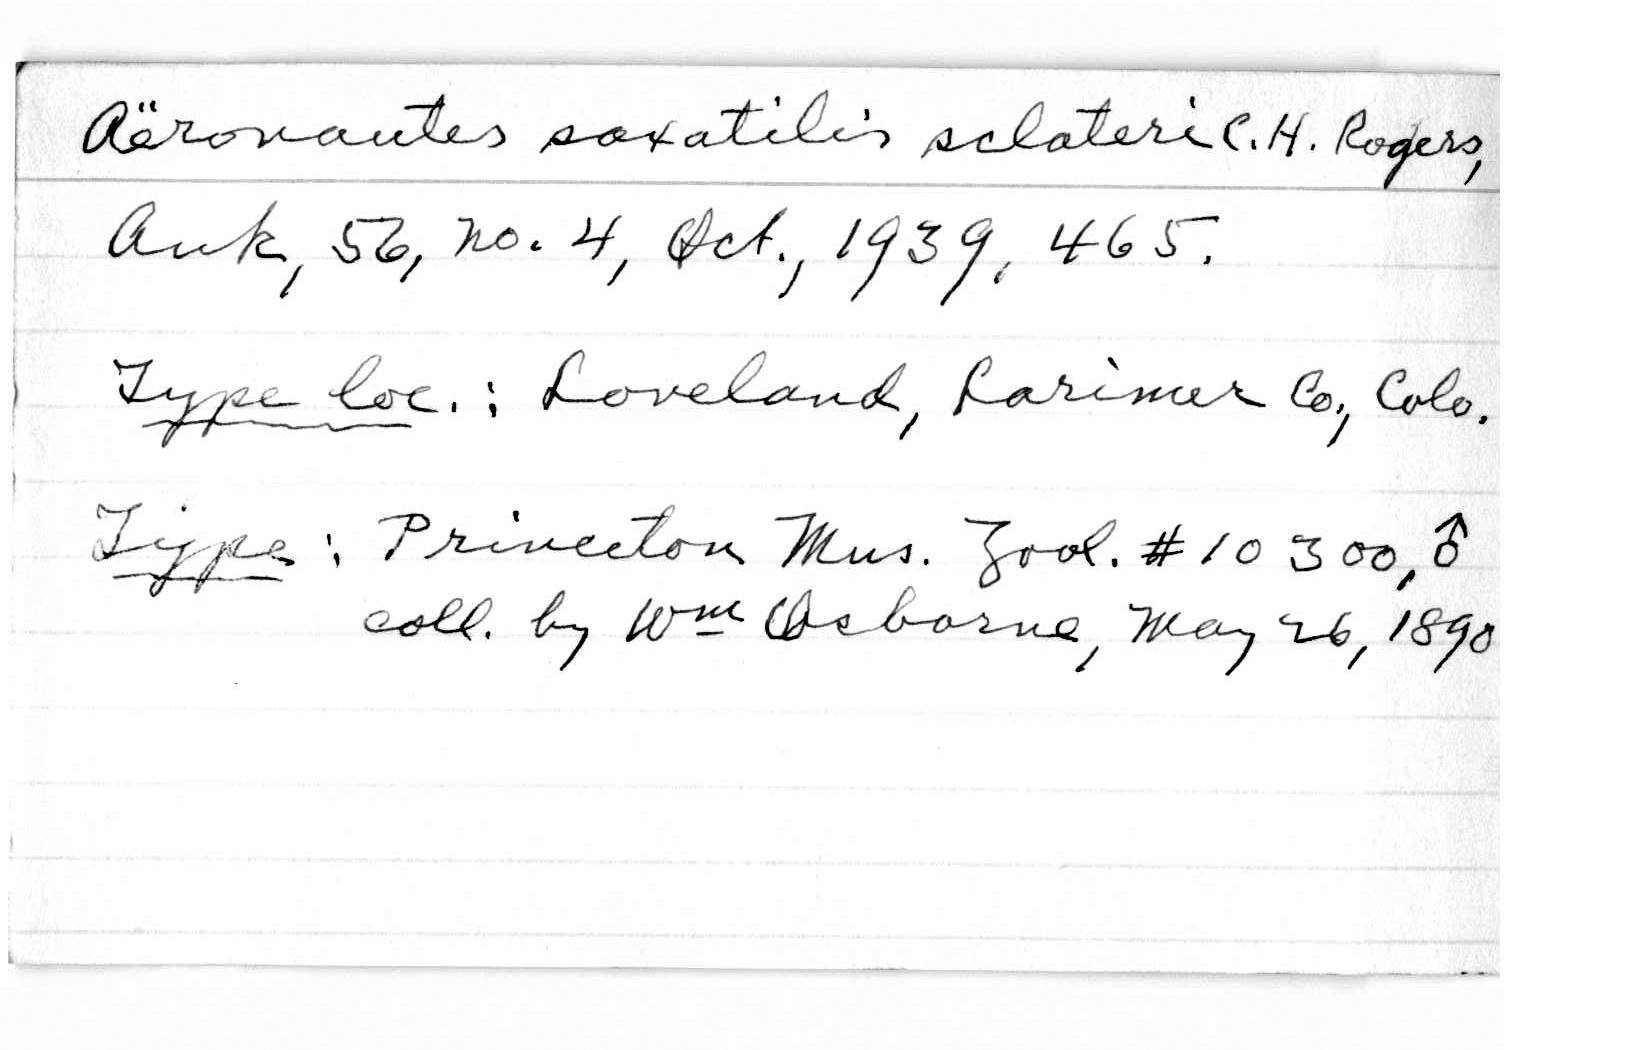 Aëronautes saxatilis sclateri C. H. Rogers,
Auk, 56, no. 4, Oct., 1939, 465.
Type loc.: Loveland, Larimer Co., Colo.
Type: Princeton Mus. Zool. #10300, ♂
coll. by Wm Osborne, May 26, 1890